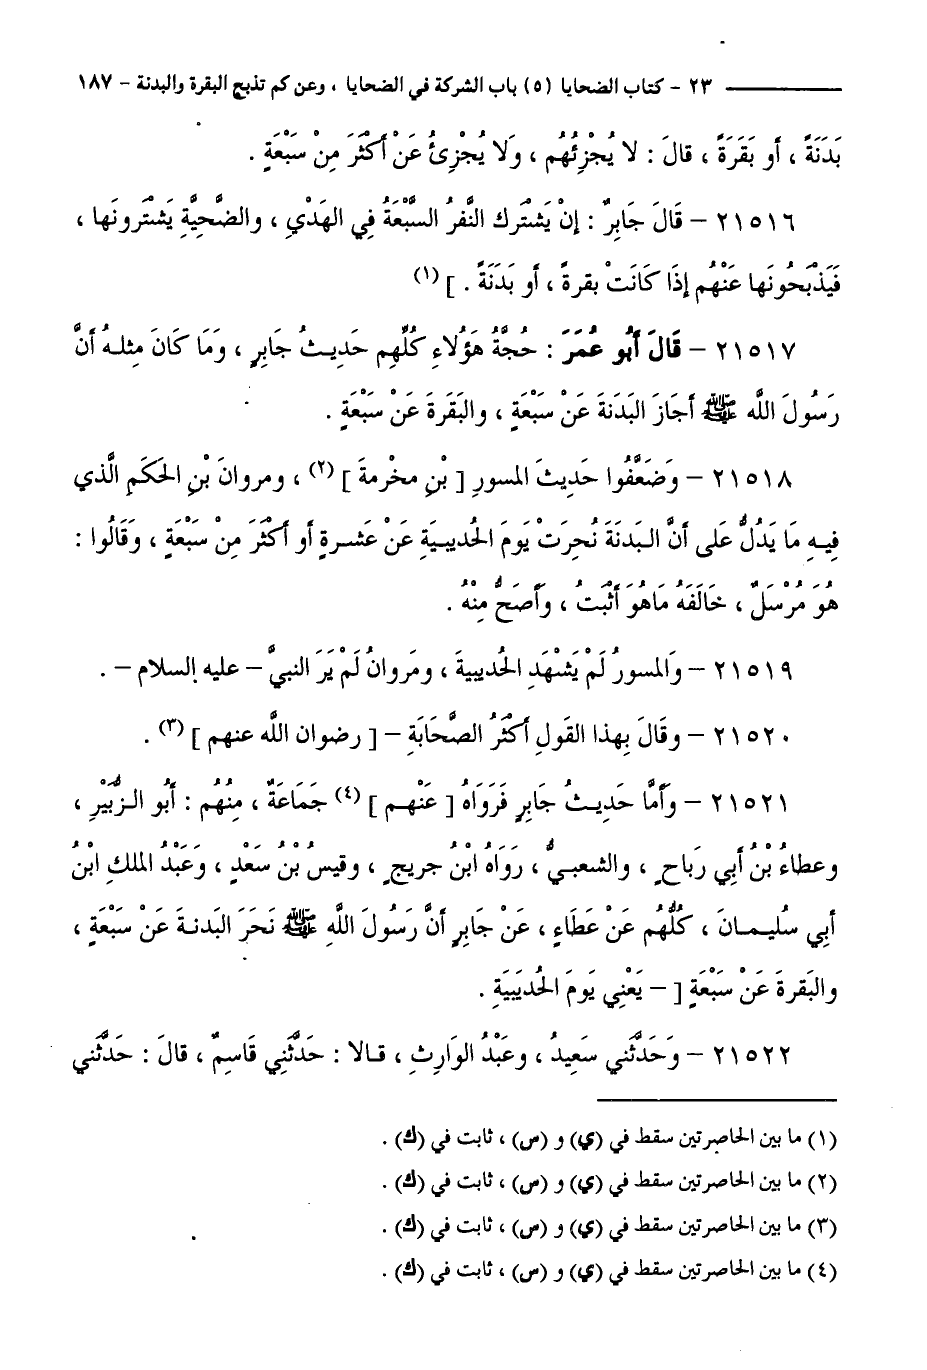 ٢٣ - كتاب الضحايا (٥) باب الشركة في الضحايا ، وعن كم تذبح البقرة والبدنة - ١٨٧
بَدَنَةً ، أو بَقَرَةً ، قالَ : لا يُجْزِئُهُم ، ولَا يُجْزِئُ عَنْ أَكْثَرَ مِنْ سَبْعَةٍ .
٢١٥١٦ – قَالَ جَابِرٌ : إنْ يَشْتَرك النَّفرُ السَّبْعَةُ فِي الهَدْيِ ، والضَّحيَّةِ يَشْتَرونَها ،
فَيَذْبَحُونَها عَنْهُم إذَا كَانَتْ بقرةً ، أو بَدَنَةً . ] (١)
٢١٥١٧ – قَالَ أَبُو عُمَرَ : حُجَّةُ هَؤُلاءِ كُلِّهِم حَدِيثُ جَابِرٍ ، وَمَا كَانَ مِثلهُ أنَّ
رَسُولَ اللَّه ﷺ أجَازَ البَدَنَةَ عَنْ سَبْعَةٍ ، والبَقَرَةَ عَنْ سَبْعَةٍ .
٢١٥١٨ – وَضَعَّفُوا حَدِيثَ المسورِ [ بْنِ مخْرمةَ ] (٢) ، ومروانَ بْنِ الحَكَمِ الَّذي
فِيهِ مَا يَدُلُّ عَلَى أنَّ البَدَنَةَ نُحِرَتْ يَومَ الحُديبيَةِ عَنْ عَشرةٍ أو أكْثَرَ مِنْ سَبْعَةٍ ، وَقَالُوا :
هُوَ مُرْسَلٌ ، خَالَفَهُ مَاهُوَ أثْبَتُ ، وأَصَحُّ مِنْهُ .
٢١٥١٩ – وَالمسورُ لَمْ يَشْهَدِ الحُديبيةَ ، ومَروانُ لَمْ يَرَ النبيَّ – عليه السلام – .
٢١٥٢٠ – وقَالَ بِهذا القَولِ أكْثَرُ الصَّحَابَةِ – [ رضوان اللَّه عنهم ] (٣) .
٢١٥٢١ – وأمَّا حَدِيثُ جَابِرٍ فَرَوَاهُ [ عَنْهم ] (٤) جَمَاعَةٌ ، مِنْهُم : أبُو الزُّبَيْرِ ،
وعطاءُ بْنُ أبِي رَبَاحٍ ، والشعبيُّ ، رَوَاهُ ابْنُ جريجٍ ، وقيسُ بْنُ سَعْدٍ ، وَعَبْدُ الملكِ ابْنُ
أبِي سُليمانَ ، كُلُّهُم عَنْ عَطَاءٍ ، عَنْ جَابِرٍ أنَّ رَسُولَ اللَّهِ ﷺ نَحَرَ البَدنةَ عَنْ سَبْعَةٍ ،
والبَقرةَ عَنْ سَبْعَةٍ [ – يَعْنِي يَومَ الحُدَيبَيَةِ .
٢١٥٢٢ – وَحَدَّثَني سَعِيدُ ، وعَبْدُ الوَارِثِ ، قالا : حَدَّثَنِي قَاسِمٌ ، قالَ : حَدَّثَنِي
(١) ما بين الحاصرتين سقط في (ي) و (س) ، ثابت في (ك) .
(٢) ما بين الحاصرتين سقط في (ي) و (س) ، ثابت في (ك) .
(٣) ما بين الحاصرتين سقط في (ي) و (س) ، ثابت في (ك) .
(٤) ما بين الحاصرتين سقط في (ي) و (س) ، ثابت في (ك) .